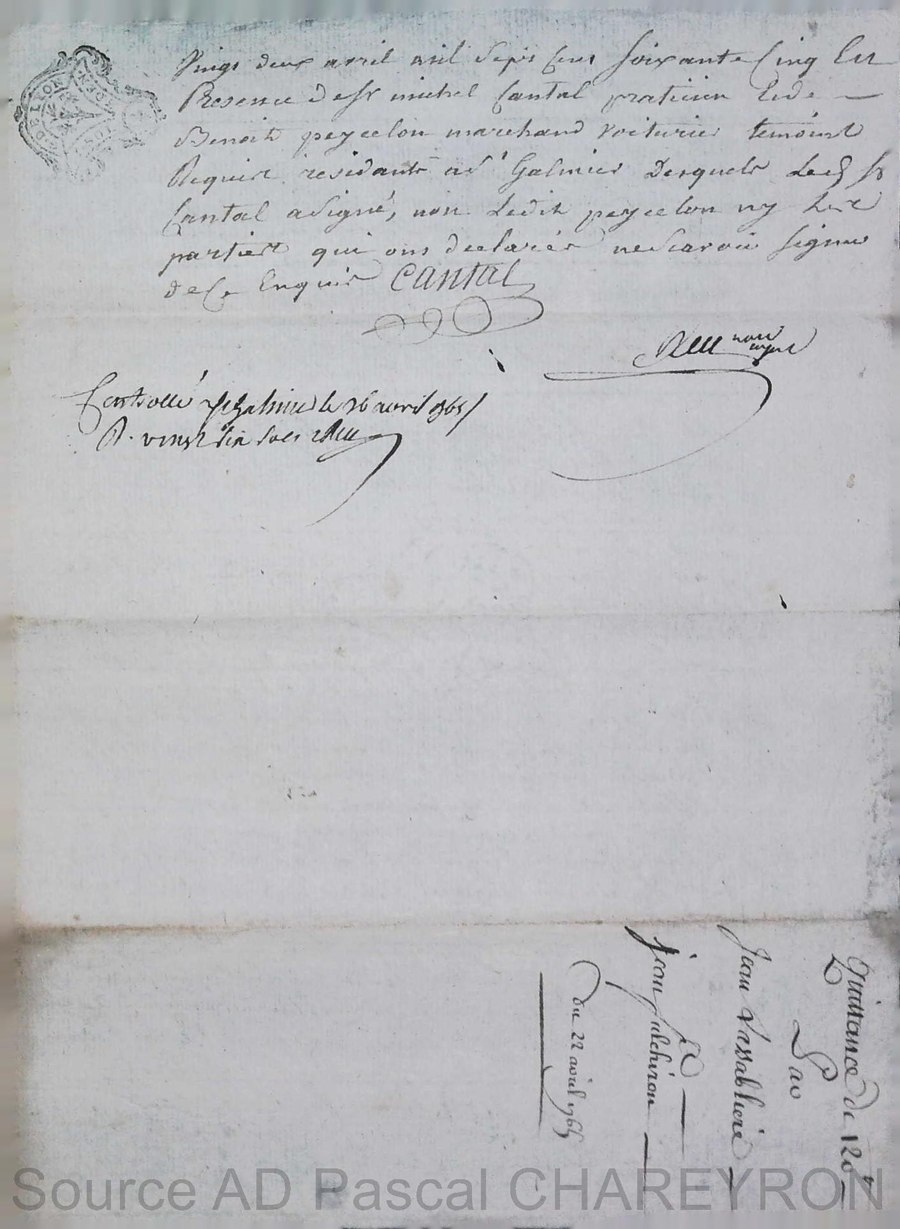 Vingt deux avril mil sept cens soixante Cinq En
Presence de sr michel Cantal praticien Et de
Benoit peycelon marchand voiturier temoins
Requis residants a st Galmier desquels Led. sr
Cantal a signé, non Ledit peycelon ny Les
parties qui ont declarés ne scavoir signer
de ce Enquis Cantal
nore royal
Controllé a st Galmier le 26 avril 1765
R. vingt six sols
Quittance de 120
Par
Jean Vassabliere
a
jean fulchiron
du 22 avril 1765
Source AD Pascal CHAREYRON